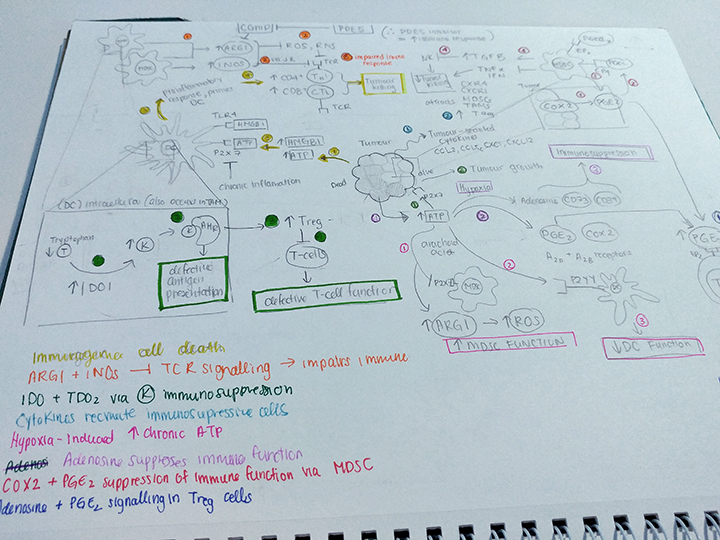 CGMP
PDE5
(∴ PDE5 inhibitor
= ↑ immune response)
↑ ARG1
ROS, RNS
↑ iNOS
TCR
impaired immune
response
↑ CD4+
TH1
↑ CD8+
CTL
TCR
Tumour
killing
NK
↑ TGFB
TNFα
IFN
CXCR4
CXCR1
MDSC
TAMS
↑ Treg
COX2
PGE2
Immunosuppression
response, primes
DC
TLR4
HMGB1
ATP
P2X7
↑ HMGB1
↑ ATP
Chronic inflammation
Tumour
Dead
alive
Tumour-secreted
cytokine
CCL2, CCL5, CXCL1, CXCL2
Tumour growth
Hypoxia
P2X7
↑ ATP
Adenosine
CD73
CD39
PGE2
COX2
A2A + A2B receptors
PGE2
(DC) Intracellular (also occurs in TAM)
Tryptophan
↓ T
↑ IDO1
↑ K
K
AHR
defective
antigen
presentation
↑ Treg
T-cells
defective T-cell function
arachidonic
acid
P2X7
MDSC
↑ ARG1 → ↑ ROS
↑ MDSC FUNCTION
P2Y11
↓ DC Function
Immunogenic cell death
ARG1 + iNOs ⊣ TCR signalling → impairs immune
IDO + TDO2 via K immunosuppression
Cytokines recruite immunosupressive cells
Hypoxia-Induced ↑ chronic ATP
Adenosine suppresses immune function
COX2 + PGE2 suppression of immune function via MDSC
Adenosine + PGE2 signalling in Treg cells